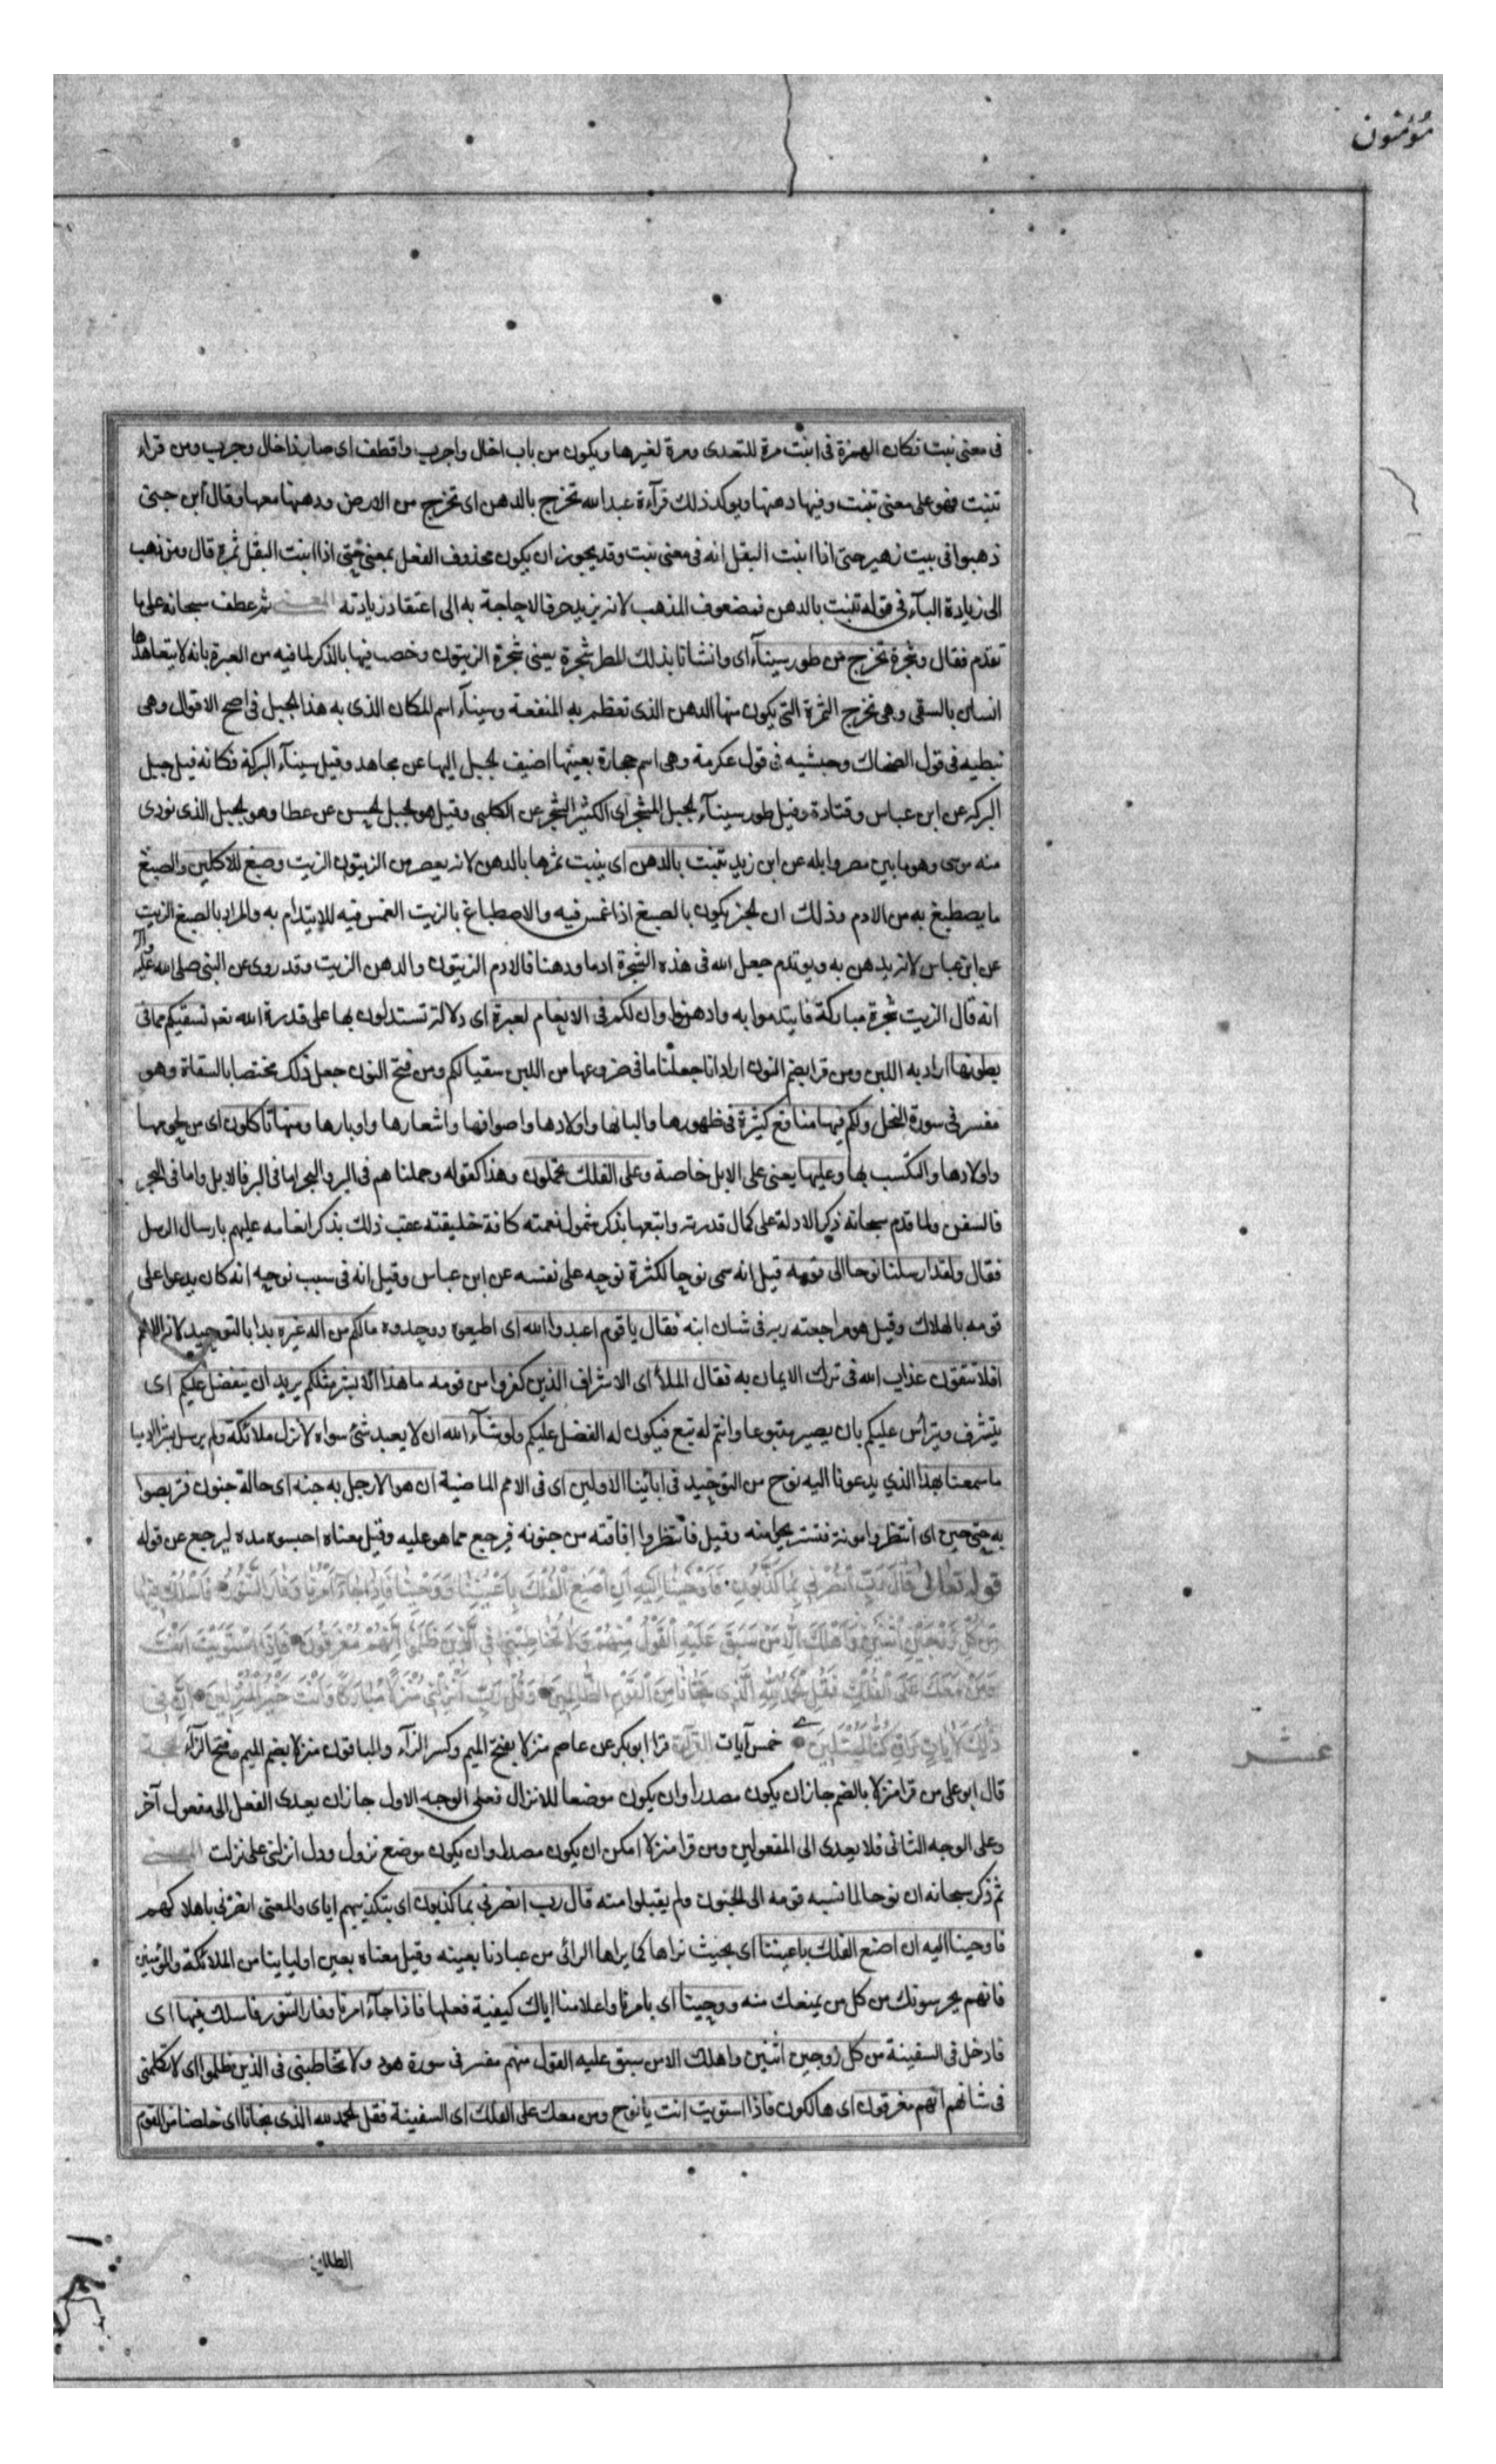 مؤمنون
فى معنى نبت فكان الهمزة فى انبت مرة للتعدى ومرة لغيرها ويكون من باب اخال واجرب واقطف اى صار ذا خال وجرب ومن قراء
تنبت فهو على معنى تنبت وفيها دهنها ويوكد ذلك قرآءة عبد الله تخرج بالدهن اى تخرج من الارض ودهنها معها وقال ابن جنى
ذهبوا فى بيت زهير حتى اذا انبت البقل انه فى معنى نبت وقد يجوز ان يكون محذوف الفعل بمعنى حتى اذا انبت البقل ثمرة قال ومن ذهب
الى زيادة البآء فى قوله تنبت بالدهن فمضعوف المذهب لانه يزيد حرفا لا حاجة به الى اعتقاد زيادته المعنى ثم عطف سبحانه على ما
تقدم فقال وشجرة تخرج من طور سينآء اى وانشانا بذلك المطر شجرة يعنى شجرة الزيتون وخصت فيها بالذكر لما فيه من العبرة بانه لا يتعاهدها
انسان بالسقى وهى تخرج الثمرة التى يكون منها الدهن الذى تعظم به المنفعة وسينآء اسم المكان الذى به هذا الجبل فى اصح الاقوال وهى
نبطيه فى قول الضحاك وحبشيه فى قول عكرمة وهى اسم حجارة بعينها اضيف لجبل اليها عن مجاهد وقيل سينآء البركة فكانه قيل جبل
البركه عن ابن عباس وقتادة وقيل طور سينآء لجبل المشجر اى الكثير الشجر عن الكلبى وقيل هو لجبل لحسن عن عطا وهو لجبل الذى نودى
منه موسى وهو ما بين مصر وايله عن ابن زيد تنبت بالدهن اى ينبت ثمرها بالدهن لانه يعصر من الزيتون الزيت وصبغ للاكلين والصبغ
ما يصطبغ به من الادم وذلك ان لخبز يكون بالصبغ اذا غمس فيه والاصطباغ بالزيت الغمس فيه للايتدام به والمراد بالصبغ الزيت
عن ابن عباس لانه يدهن به ويوتدم جعل الله فى هذه الشجرة ادما ودهنا فالادم الزيتون والدهن الزيت وقد روى عن النبى صلى الله عليه وآله
انه قال الزيت شجرة مباركة فايتدموا به وادهنوا وان لكم فى الانعام لعبرة اى دلالة تستدلون بها على قدرة الله تعم نسقيكم مما فى
بطونها اراد به اللبن ومن قرا بضم النون اراد انا جعلنا ما فى ضروعها من اللبن سقيا لكم ومن فتح النون جعل ذلك مختصا بالسقاة وهو
مفسر فى سورة النحل ولكم فيها منافع كثيرة فى ظهورها والبانها واولادها واصوافها واشعارها واوبارها ومنها تاكلون اى من لحومها
واولادها والتكسب بها وعليها يعنى على الابل خاصة وعلى الفلك تحملون وهذا كقوله وحملناهم فى البر والبحر اما فى البر فالابل واما فى البحر
فالسفن ولما قدم سبحانه ذكر الادلة على كمال قدرته واتبعها بذكر شمول نعمته كافة خليقته عقب ذلك بذكر انعامه عليهم بارسال الرسل
فقال ولقد ارسلنا نوحا الى قومه قيل انه سمى نوحا لكثرة نوحه على نفسه عن ابن عباس وقيل انه فى سبب نوحه انه كان يدعوا على
قومه بالهلاك وقيل هو مراجعته ربه فى شان ابنه فقال يا قوم اعبدوا الله اى اطيعوه ووحدوه مالكم من اله غيره بدا بالتوحيد لانه الاهم
افلا تتقون عذاب الله فى ترك الايمان به فقال الملأ اى الاشراف الذين كفروا من قومه ما هذا الا بشر مثلكم يريد ان يتفضل عليكم اى
يتشرف ويترأس عليكم بان يصير متبوعا وانتم له تبع فيكون له الفضل عليكم ولو شآء الله ان لا يعبد شئ سواه لانزل ملائكة ولم يرسل بشرا ادميا
ما سمعنا بهذا الذي يدعونا اليه نوح من التوحيد فى ابائنا الاولين اى فى الامم الماضية ان هو الا رجل به جنه اى حالة جنون فتربصوا
به حتى حين اى انتظروا موته فتستريحوا منه وقيل فانتظروا افاقته من جنونه فيرجع عما هو عليه وقيل معناه احبسوه مده ليرجع عن قوله
قوله تعالى قَالَ رَبِّ انْصُرْنِي بِمَا كَذَّبُونِ فَاَوْحَيْنَا اِلَيْهِ اَنِ اصْنَعِ الْفُلْكَ بِاَعْيُنِنَا وَوَحْيِنَا فَاِذَا جَآءَ اَمْرُنَا وَفَارَ التَّنُّورُ فَاسْلُكْ فِيهَا
مِنْ كُلٍّ زَوْجَيْنِ اثْنَيْنِ وَاَهْلَكَ اِلَّا مَنْ سَبَقَ عَلَيْهِ الْقَوْلُ مِنْهُمْ وَلَا تُخَاطِبْنِي فِي الَّذِينَ ظَلَمُوا اِنَّهُمْ مُغْرَقُونَ فَاِذَا اسْتَوَيْتَ اَنْتَ
وَمَنْ مَعَكَ عَلَى الْفُلْكِ فَقُلِ الْحَمْدُ لِلّٰهِ الَّذِي نَجَّانَا مِنَ الْقَوْمِ الظَّالِمِينَ وَقُلْ رَبِّ اَنْزِلْنِي مُنْزَلًا مُبَارَكًا وَاَنْتَ خَيْرُ الْمُنْزِلِينَ اِنَّ فِي
ذٰلِكَ لَاٰيَاتٍ وَاِنْ كُنَّا لَمُبْتَلِينَ خمس آيات القرآءة قرا ابو بكر عن عاصم منزلا بفتح الميم وكسر الزآء والباقون منزلا بضم الميم وفتح الزآء الحجة
عشر
قال ابو على من قرا منزلا بالضم جاز ان يكون مصدرا وان يكون موضعا للانزال فعلى الوجه الاول جاز ان يعدى الفعل الى مفعول آخر
وعلى الوجه الثانى فلا يعدى الى المفعولين ومن قرا منزلا امكن ان يكون مصدرا وان يكون موضع نزول ودل انزلنى على نزلت المعنى
ثم ذكر سبحانه ان نوحا لما نسبه قومه الى الجنون ولم يقبلوا منه قال رب انصرنى بما كذبون اى بتكذيبهم اياى والمعنى انصرنى باهلاكهم
فاوحينا اليه ان اصنع الفلك باعيننا اى بحيث نراها كما يراها الرائى من عبادنا بعينه وقيل معناه بعين اوليائنا من الملائكة والمؤمنين
فانهم يحرسونك من كل من يمنعك منه ووحينا اى بامرنا واعلامنا اياك كيفية فعلها فاذا جآء امرنا وفار التنور فاسلك فيها اى
فادخل فى السفينة من كل زوجين اثنين واهلك الا من سبق عليه القول منهم مفسر فى سورة هود ولا تخاطبنى فى الذين ظلموا اى لا تكلمنى
فى شانهم انهم مغرقون اى هالكون فاذا استويت انت يا نوح ومن معك على الفلك اى السفينة فقل لحمد لله الذى نجانا اى خلصنا من القوم
الظالمين